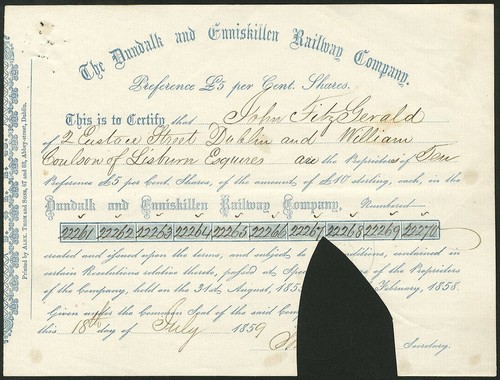 The Dundalk and Enniskillen Railway Company.
Preference £5 per Cent. Shares.
This is to Certify that John FitzGerald
of 2 Eustace Street Dublin and William
Coulson of Lisburn Esquires are the Proprietors of Ten
Preference £5 per Cent. Shares, of the amount of £10 sterling, each, in the
Dundalk and Enniskillen Railway Company, Numbered
22261 22262 22263 22264 22265 22266 22267 22268 22269 22270
created and issued upon the terms, and subject to conditions, contained in
certain Resolutions relative thereto, passed at of the Proprietors
of the Company, held on the 31st August, 185 February, 1858.
Given under the Common Seal of the said Com
this 18th day of July 1859
Secretary.
Printed by Alex. Thom and Sons, 87 and 88, Abbey-street, Dublin.